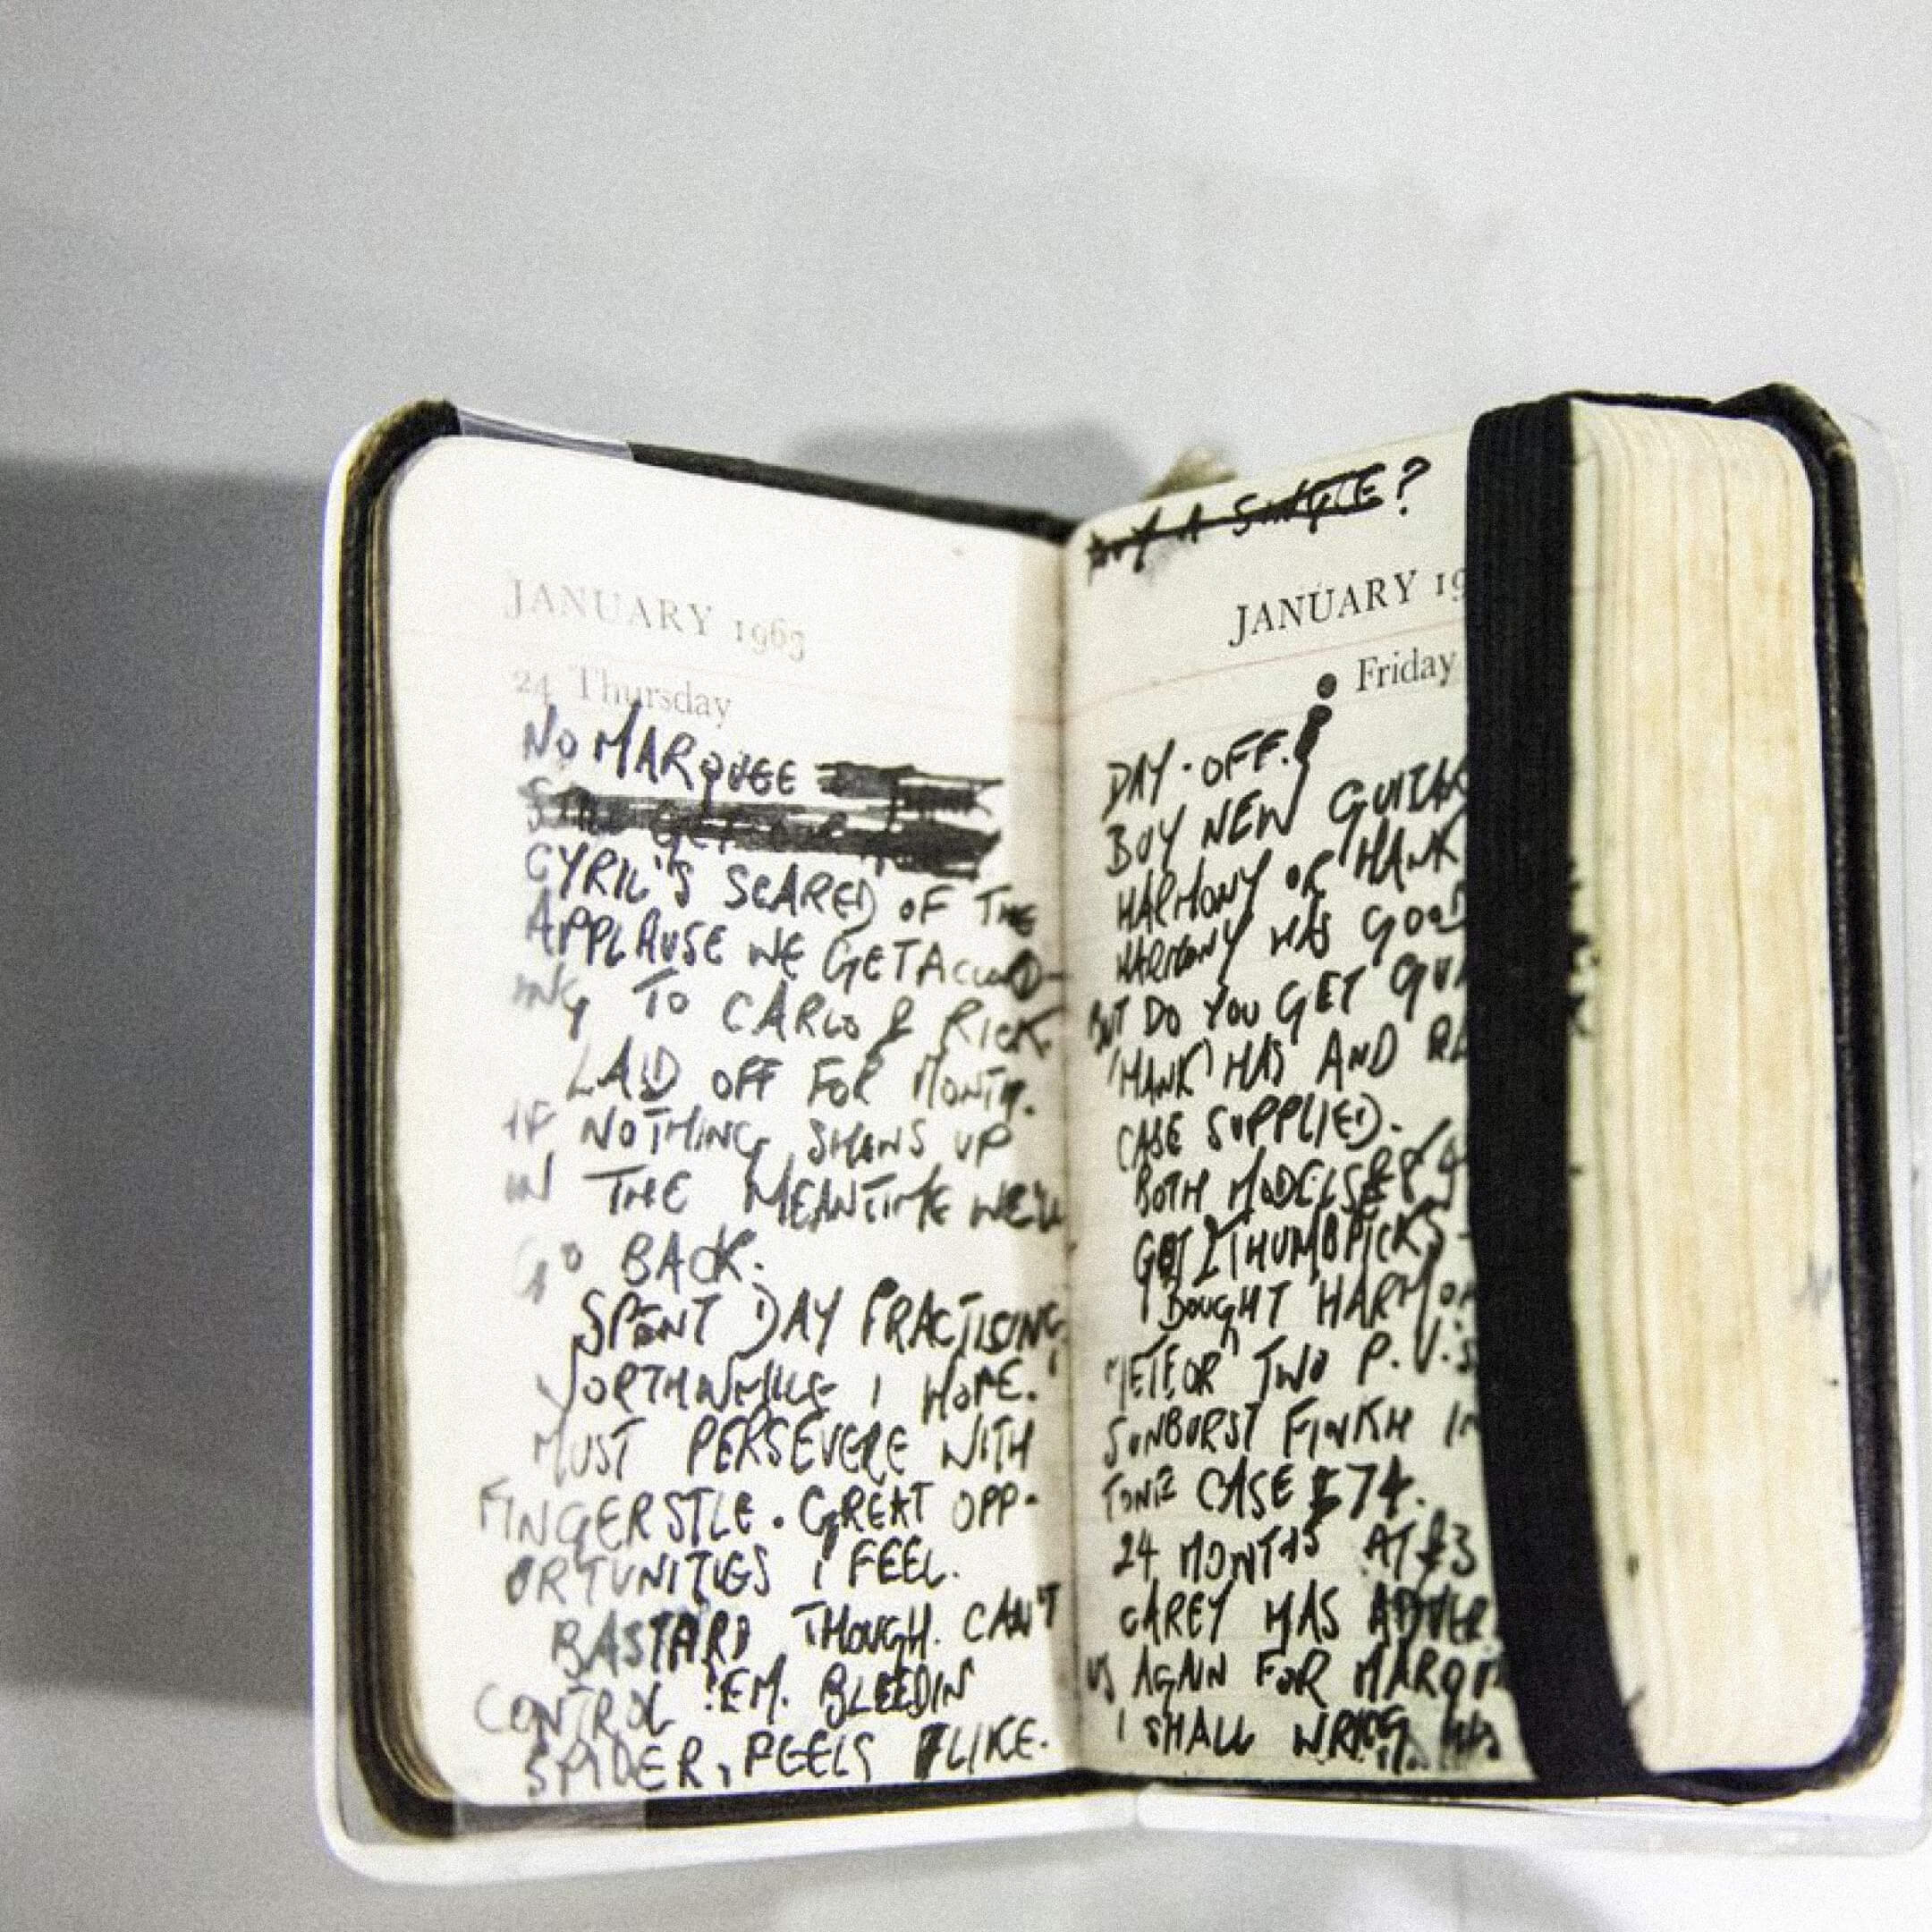 JANUARY 1963
24 Thursday
NO MARQUEE
CYRIL'S SCARED OF THE
APPLAUSE WE GET ACCORD-
ING TO CARLO & RICK.
LAID OFF FOR MONTH.
IF NOTHING SHOWS UP
IN THE MEANTIME WE'LL
GO BACK.
SPENT DAY PRACTISING.
WORTHWHILE I HOPE.
MUST PERSEVERE WITH
FINGERSTLE. GREAT OPP-
ORTUNITIES I FEEL.
BASTARD THOUGH. CAN'T
CONTROL 'EM. BLEEDIN
SPIDER, FEELS LIKE.
A SINGLE?
JANUARY 19
Friday
DAY-OFF.
BUY NEW GUITAR
HARMONY OR 'HANK
HARMONY HAS GOOD
BUT DO YOU GET GUA
'HANK' HAS AND
CASE SUPPLIED.
BOTH MODELS
GOT 2 THUMBPICKS-
I BOUGHT HARMON
METEOR" TWO P.U.S
SUNBURST FINISH IN
CASE £74.
24 MONTHS AT £3
CAREY HAS ADVER
US AGAIN FOR MARQU
I SHALL WRING